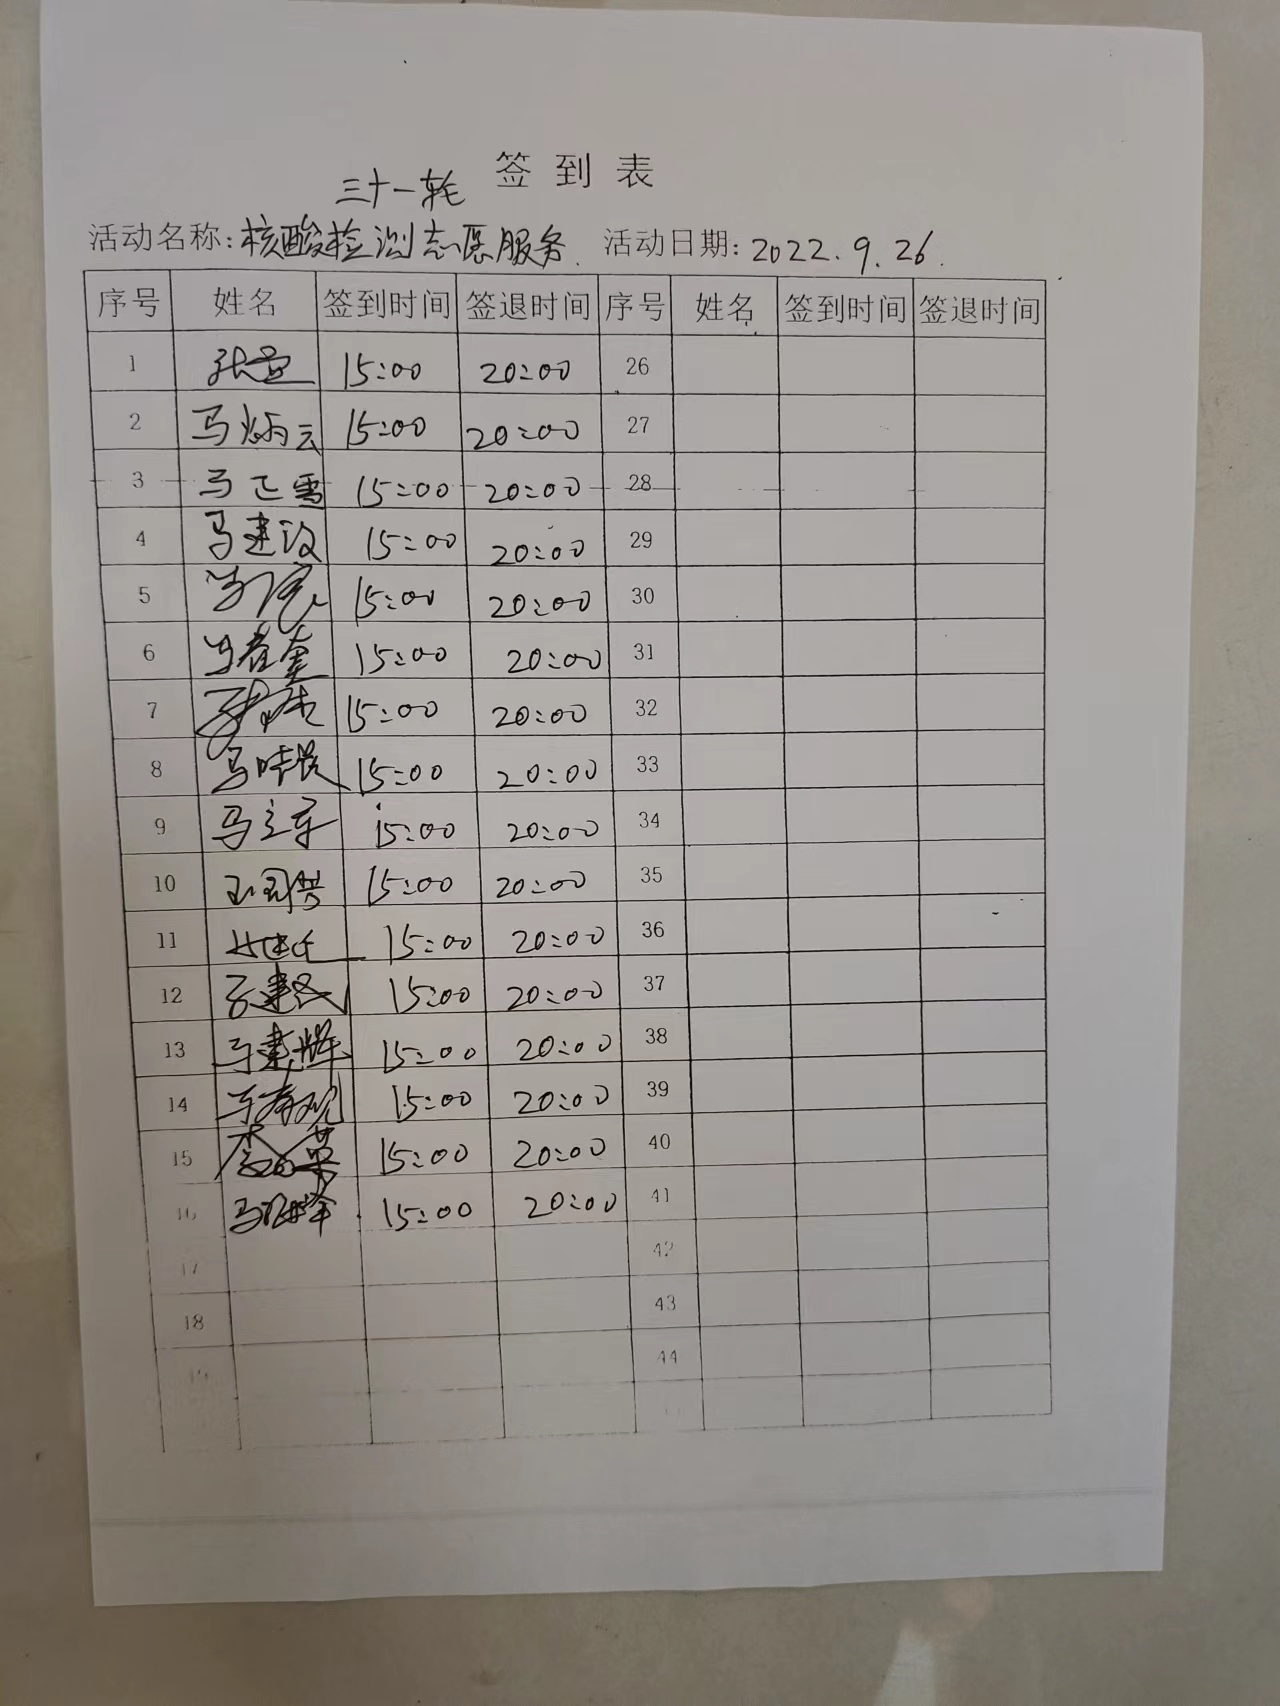 三十一轮 签到表
活动名称:核酸检测志愿服务. 活动日期:2022.9.26.
序号 姓名 签到时间 签退时间 序号 姓名 签到时间 签退时间
1 15:00 20:00 26
2 马炳云 15:00 20:00 27
3 马正雷 15:00 20:00 28
4 马建设 15:00 20:00 29
5 15:00 20:00 30
6 15:00 20:00 31
7 15:00 20:00 32
8 15:00 20:00 33
9 马立军 15:00 20:00 34
10 15:00 20:00 35
11 15:00 20:00 36
12 15:00 20:00 37
13 马建辉 15:00 20:00 38
14 15:00 20:00 39
15 15:00 20:00 40
16 15:00 20:00 41
17 42
18 43
19 44